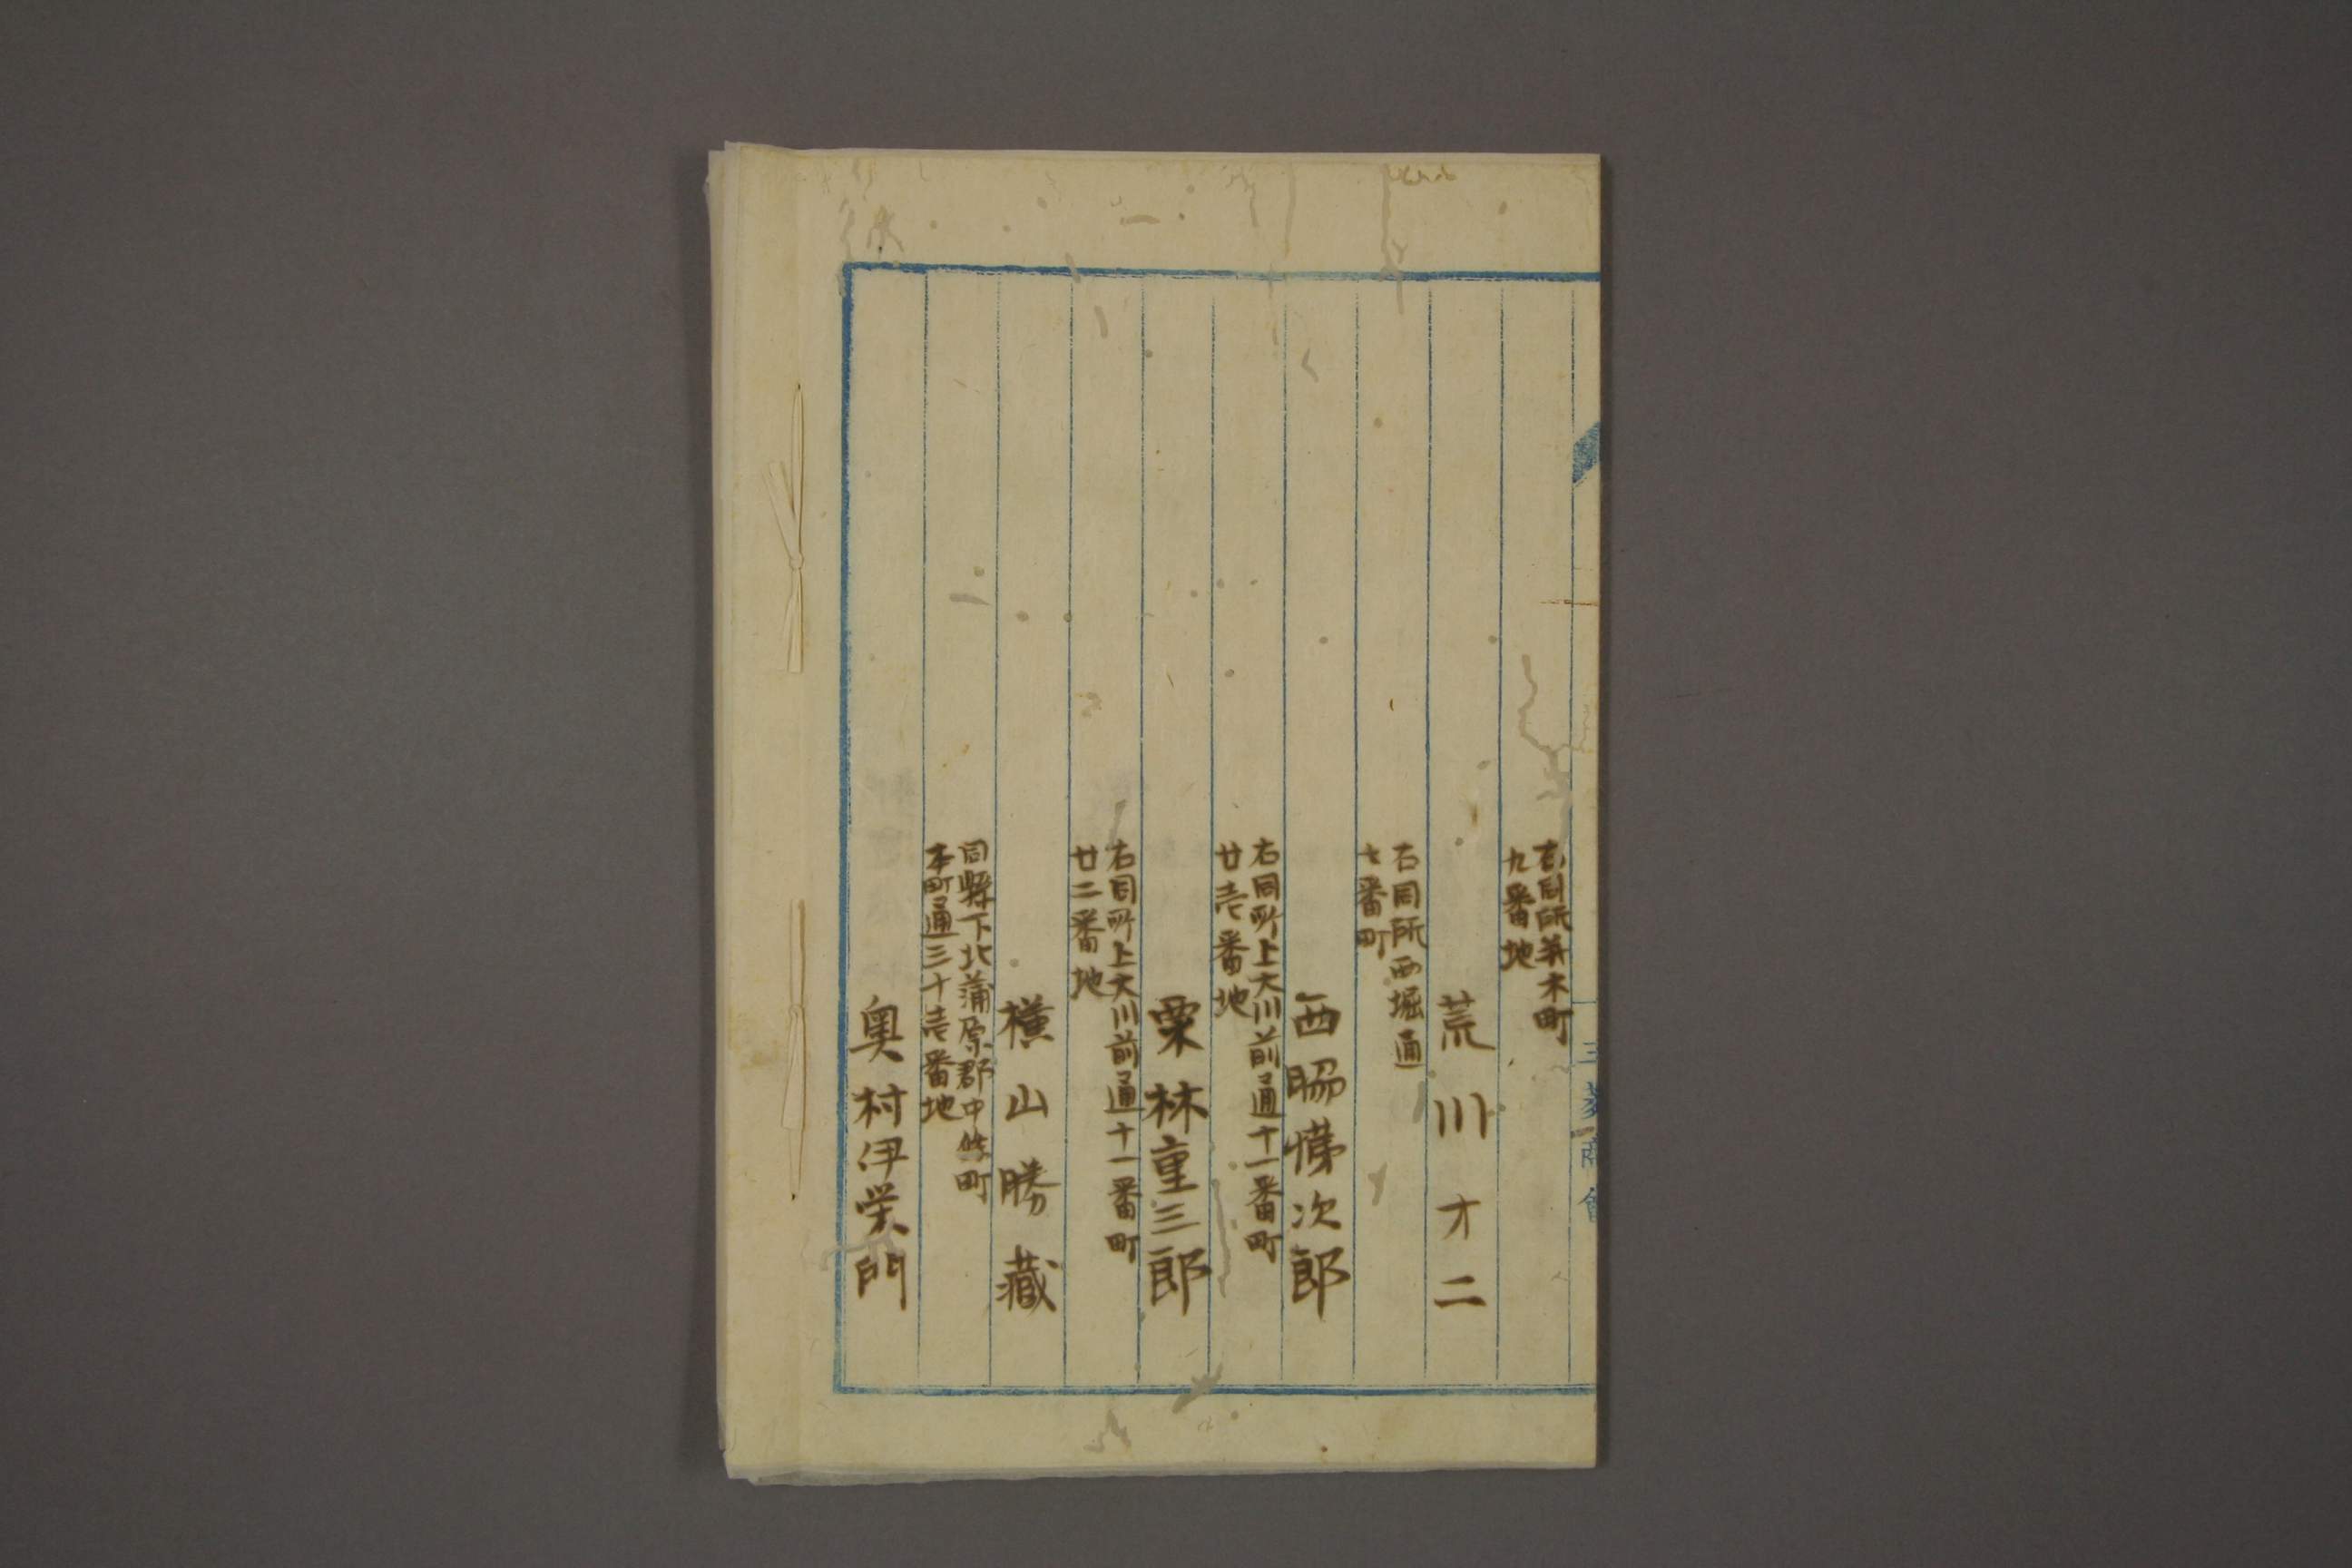 右同所并木町
九番地
荒川才二
右同所西堀通
七番町
西脇悌次郎
右同所上大川前通十一番町
廿壱番地
栗林重三郎
右同所上大川前通十一番町
廿二番地
横山勝蔵
同縣下北蒲原郡中條町
本町通三十壱番地
奥村伊栄門
三菱商會